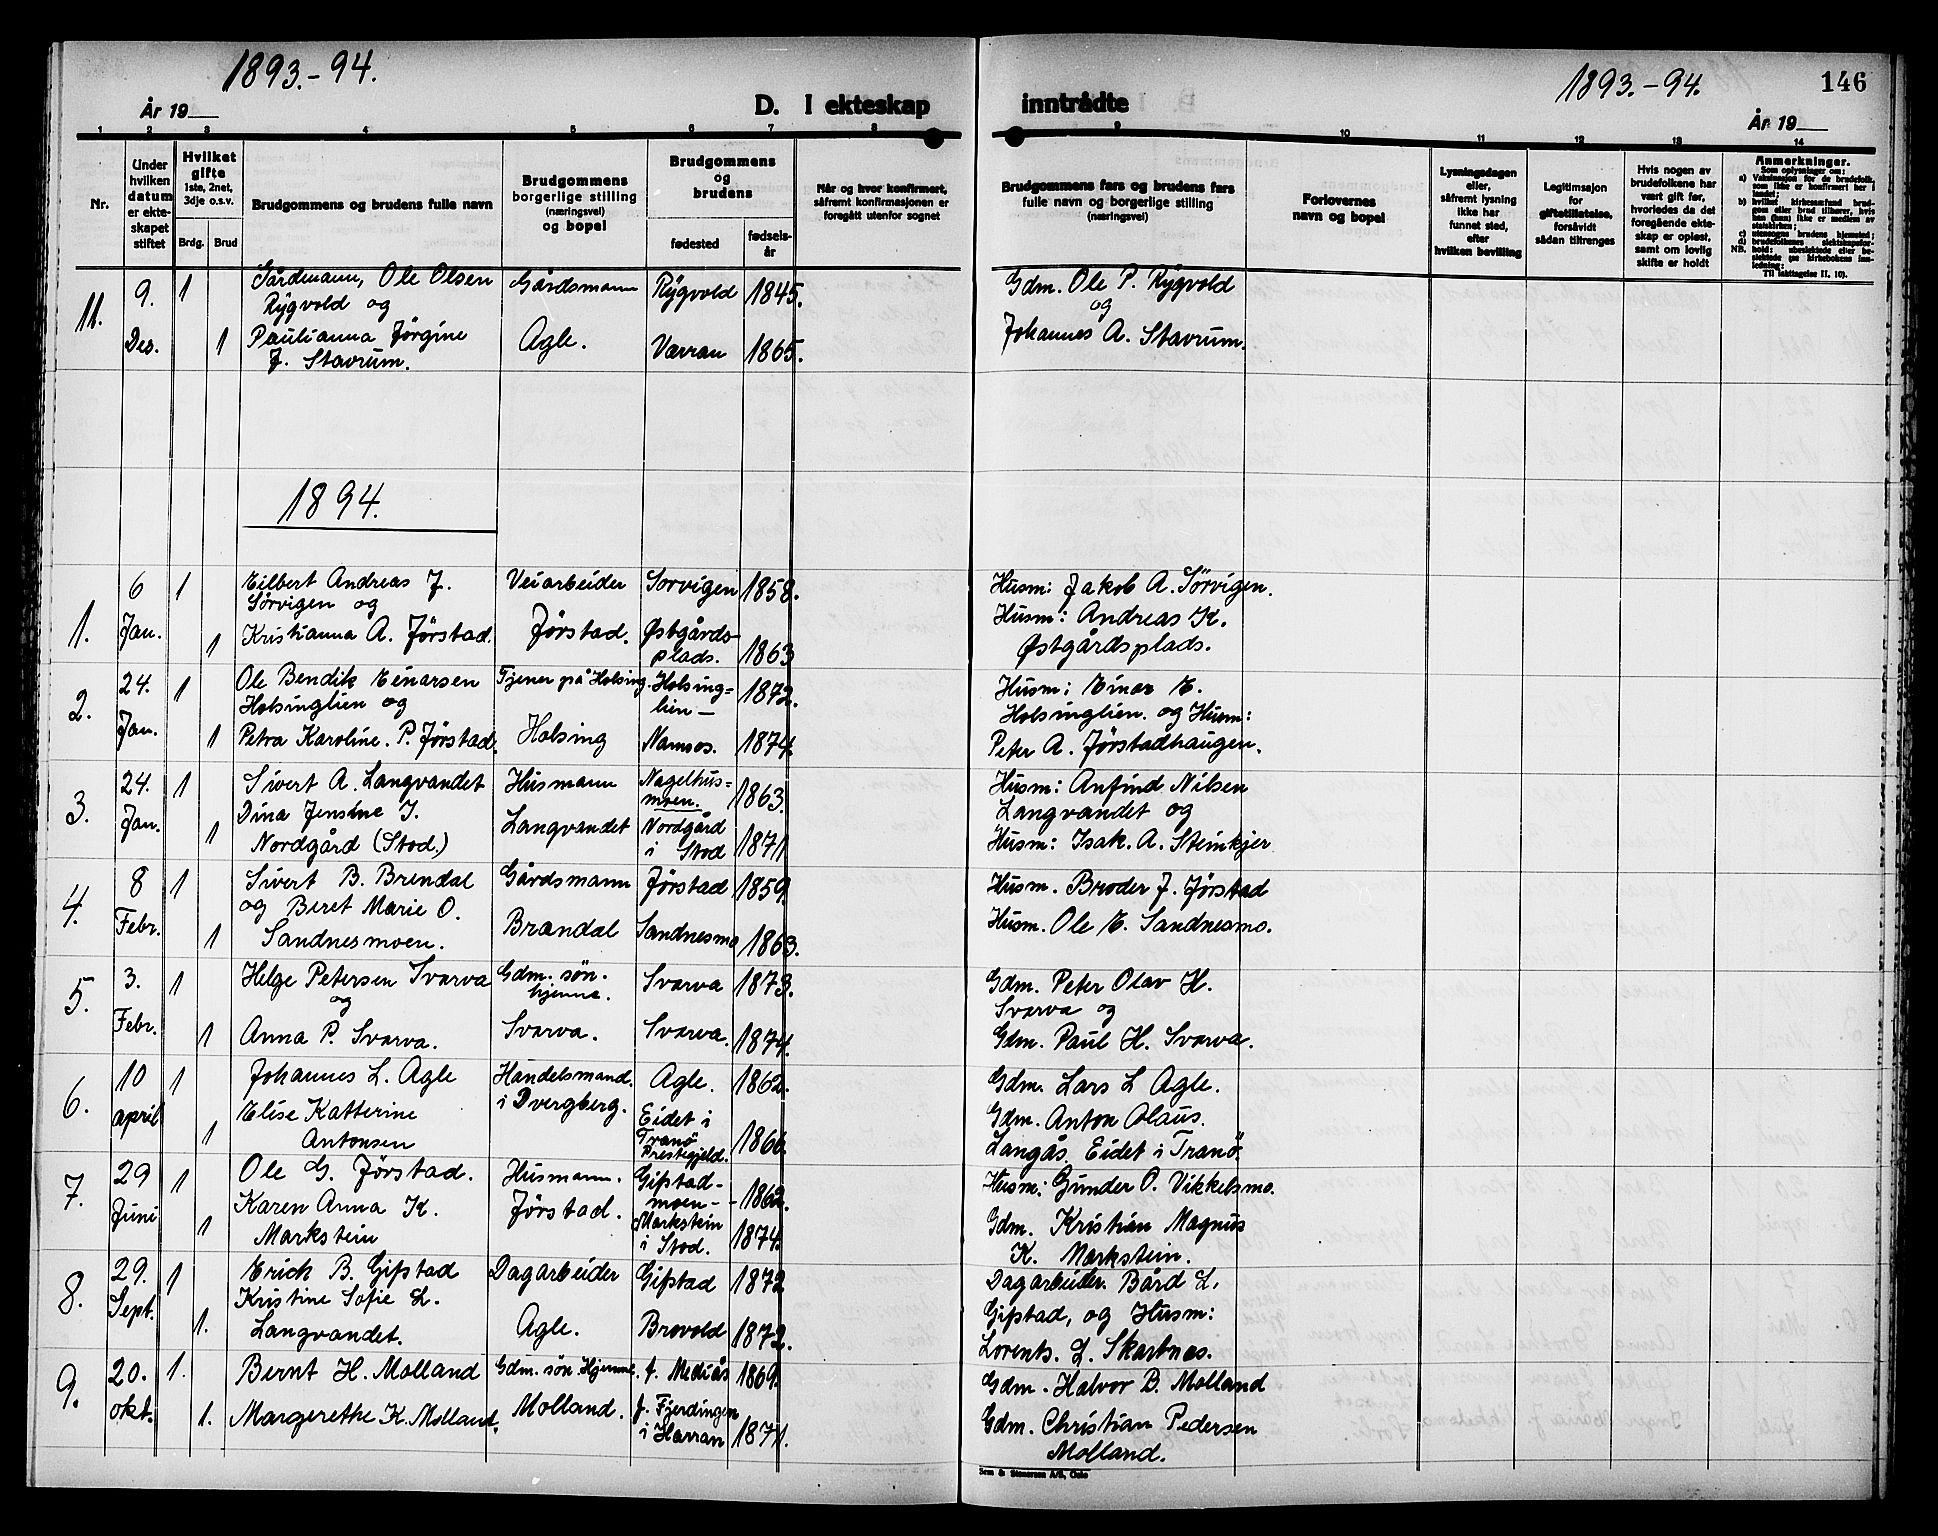 1893.-94.
År 19
D. I ekteskap
inntrådte
1893.-94.
146
År 19
1 2 3 4 5 6 7 8
9 10 11 12 13 14
Nr.
Under hvilken datum er ekteskapet stiftet
Hvilket gifte
1ste, 2net, 3dje o.s.v.
Brdg. Brud
Brudgommens og brudens fulle navn
Brudgommens borgerlige stilling (næringsvei) og bopel
Brudgommens og brudens
fødested
fødselsår
Når og hvor konfirmert, såfremt konfirmasjonen er foregått utenfor sognet
Brudgommens fars og brudens fars fulle navn og borgerlige stilling (næringsvei)
Forlovernes navn og bopel
Lysningsdagen eller, såfremt lysning ikke har funnet sted, efter hvilken bevilling
Legitimasjon for giftetillatelse, forsåvidt sådan tiltrenges
Hvis nogen av brudefolkene har vært gift før, hvorledes da det foregående ekteskap er opløst, samt om lovlig skifte er holdt
Anmerkninger.
Som oplysninger om:
11. 9. Des. 1 Gårdmann, Ole Olsen Gårdsmann Rygvold 1845. Gdm. Ole P. Rygvold
Rygvold og
og
1 Paulianna Jørgine Agle. Værran 1865. Johannes A. Stavrum.
J. Stavrum.
1894.
1. 6 Jan. 1 Eilbert Andreas J. Veiarbeider Sorvigen 1858. Husm: Jakob A. Sørvigen.
Sørvigen og
Husm: Andreas K.
1 Kristianna A. Jørstad. Jørstad. Østgårds-
plads. 1863 Østgårdsplads.
2. 24. Jan. 1 Ole Bendik Einarsen Tjener på Holsing. Holsing=
lien- 1872. Husm: Einar E.
Holsinglien og
Holsinglien. og Husm:
1 Petra Karoline. P. Jørstad. Holsing Namsos. 1874. Peter A. Jørstadhaugen.
3. 24. Jan. 1 Sivert A. Langvandet Husmann Nagelhus=
moen. 1863. Husm: Anfind Nilsen
Dina Jensine I.
Langvandet og
1 Nordgård (Stod.) Langvandet Nordgård
i Stod 1871 Husm: Isak. A. Steinkjer
4. 8 Febr. 1 Sivert B. Brendal Gårdsmann Jørstad 1859. Husm. Broder J. Jørstad
og Beret Marie O.
1 Sandnesmoen. Brændal Sandnesmo 1863. Husm. Ole E. Sandnesmo.
5. 3. Febr. 1 Helge Petersen Svarva Gdm. søn.
hjemme. Svarva 1873. Gdm. Peter Olav H.
og
Svarva og
1 Anna P. Svarva. Svarva. Svarva. 1874. Gdm. Paul H. Svarva.
6. 10 april 1 Johannes L. Agle Handelsmand.
i Dvergberg. Agle. 1862. Gdm. Lars L Agle.
Elise Katterine
Gdm. Anton Olaus.
1 Antonsen Eidet i
Tranø
Prestegjeld. 1866. Langås. Eidet i Tranö.
7. 29 Juni 1 Ole G. Jørstad. Husmann. Gifstad-
moen- 1862. Husm: Gunder O. Vikkelsmo.
Karen Anna K. Jørstad.
Gdm. Kristian Magnus
1 Markstein Markstein
i Stod. 1874. K. Markstein.
8. 29. Sept. 1 Erick B. Gifstad Dagarbeider Gifstad 1872 Dagarbeider. Bård L.
Kristine Sofie L.
Gifstad, og Husm:
1. Langvandet. Agle. Brovold 1872. Lorents. L. Skartnes.
9. 20. okt. 1. Bernt H. Molland Gdm. søn Hjemme. f. Mediås 1869. Gdm. Halvor B. Molland
1. Margerethe K. Molland. Molland. f. Fjerdingen
i Harran 1871. Gdm. Christian Pedersen
Molland.
Sem & Stenersen A/S, Oslo